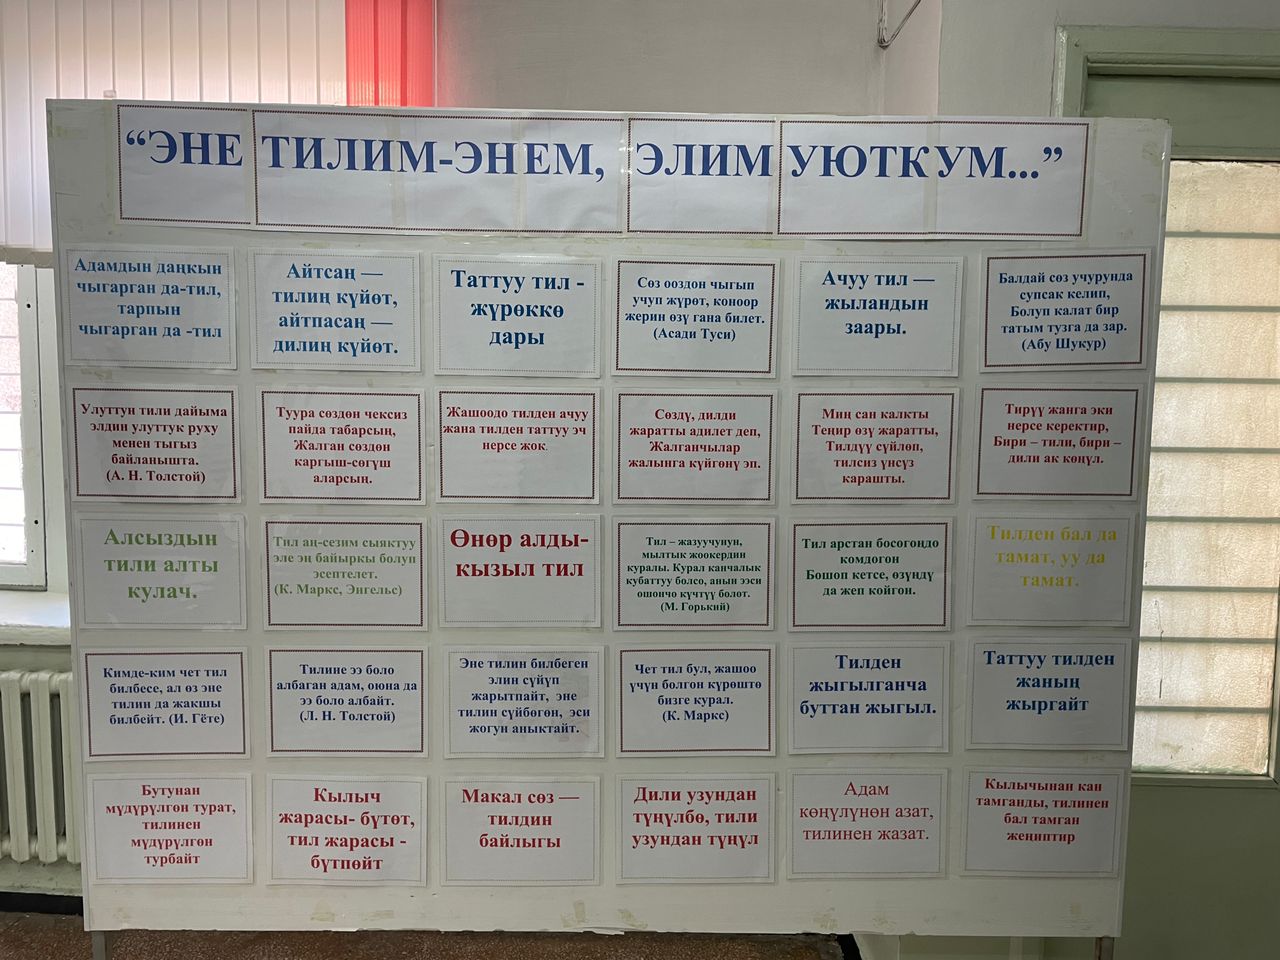 “ЭНЕ ТИЛИМ-ЭНЕМ, ЭЛИМ УЮТКУМ...”
Адамдын даңкын
чыгарган да-тил,
тарпын
чыгарган да -тил
Айтсаң —
тилиң күйөт,
айтпасаң —
дилиң күйөт.
Таттуу тил -
жүрөккө
дары
Сөз ооздон чыгып
учуп жүрөт, коноор
жерин өзү гана билет.
(Асади Туси)
Ачуу тил —
жыландын
заары.
Балдай сөз учурунда
супсак келип,
Болуп калат бир
татым тузга да зар.
(Абу Шукур)
Улуттун тили дайыма
элдин улуттук руху
менен тыгыз
байланышта.
(А. Н. Толстой)
Туура сөздөн чексиз
пайда табарсың,
Жалган сөздөн
каргыш-сөгүш
аларсың.
Жашоодо тилден ачуу
жана тилден таттуу эч
нерсе жок.
Сөздү, дилди
жаратты адилет деп,
Жалганчылар
жалынга күйгөнү эп.
Миң сан калкты
Теңир өзү жаратты,
Тилдүү сүйлөп,
тилсиз үнсүз
карашты.
Тирүү жанга эки
нерсе керектир,
Бири – тили, бири –
дили ак көңүл.
Алсыздын
тили алты
кулач.
Тил аң-сезим сыяктуу
эле эң байыркы болуп
эсептелет.
(К. Маркс, Энгельс)
Өнөр алды-
кызыл тил
Тил – жазуучунун,
мылтык жоокердин
куралы. Курал канчалык
кубаттуу болсо, анын ээси
ошончо күчтүү болот.
(М. Горький)
Тил арстан босогондо
комдогон
Бошоп кетсе, өзүңдү
да жеп койгон.
Тилден бал да
тамат, уу да
тамат.
Кимде-ким чет тил
билбесе, ал өз эне
тилин да жакшы
билбейт. (И. Гёте)
Тилине ээ боло
албаган адам, оюна да
ээ боло албайт.
(Л. Н. Толстой)
Эне тилин билбеген
элин сүйүп
жарытпайт, эне
тилин сүйбөгөн, эси
жогун аныктайт.
Чет тил бул, жашоо
үчүн болгон күрөштө
бизге курал.
(К. Маркс)
Тилден
жыгылганча
буттан жыгыл.
Таттуу тилден
жаның
жыргайт
Бутунан
мүдүрүлгөн турат,
тилинен
мүдүрүлгөн
турбайт
Кылыч
жарасы- бүтөт,
тил жарасы -
бүтпөйт
Макал сөз —
тилдин
байлыгы
Дили узундан
түңүлбө, тили
узундан түңүл
Адам
көңүлүнөн азат,
тилинен жазат.
Кылычынан кан
тамганды, тилинен
бал тамган
жеңиптир